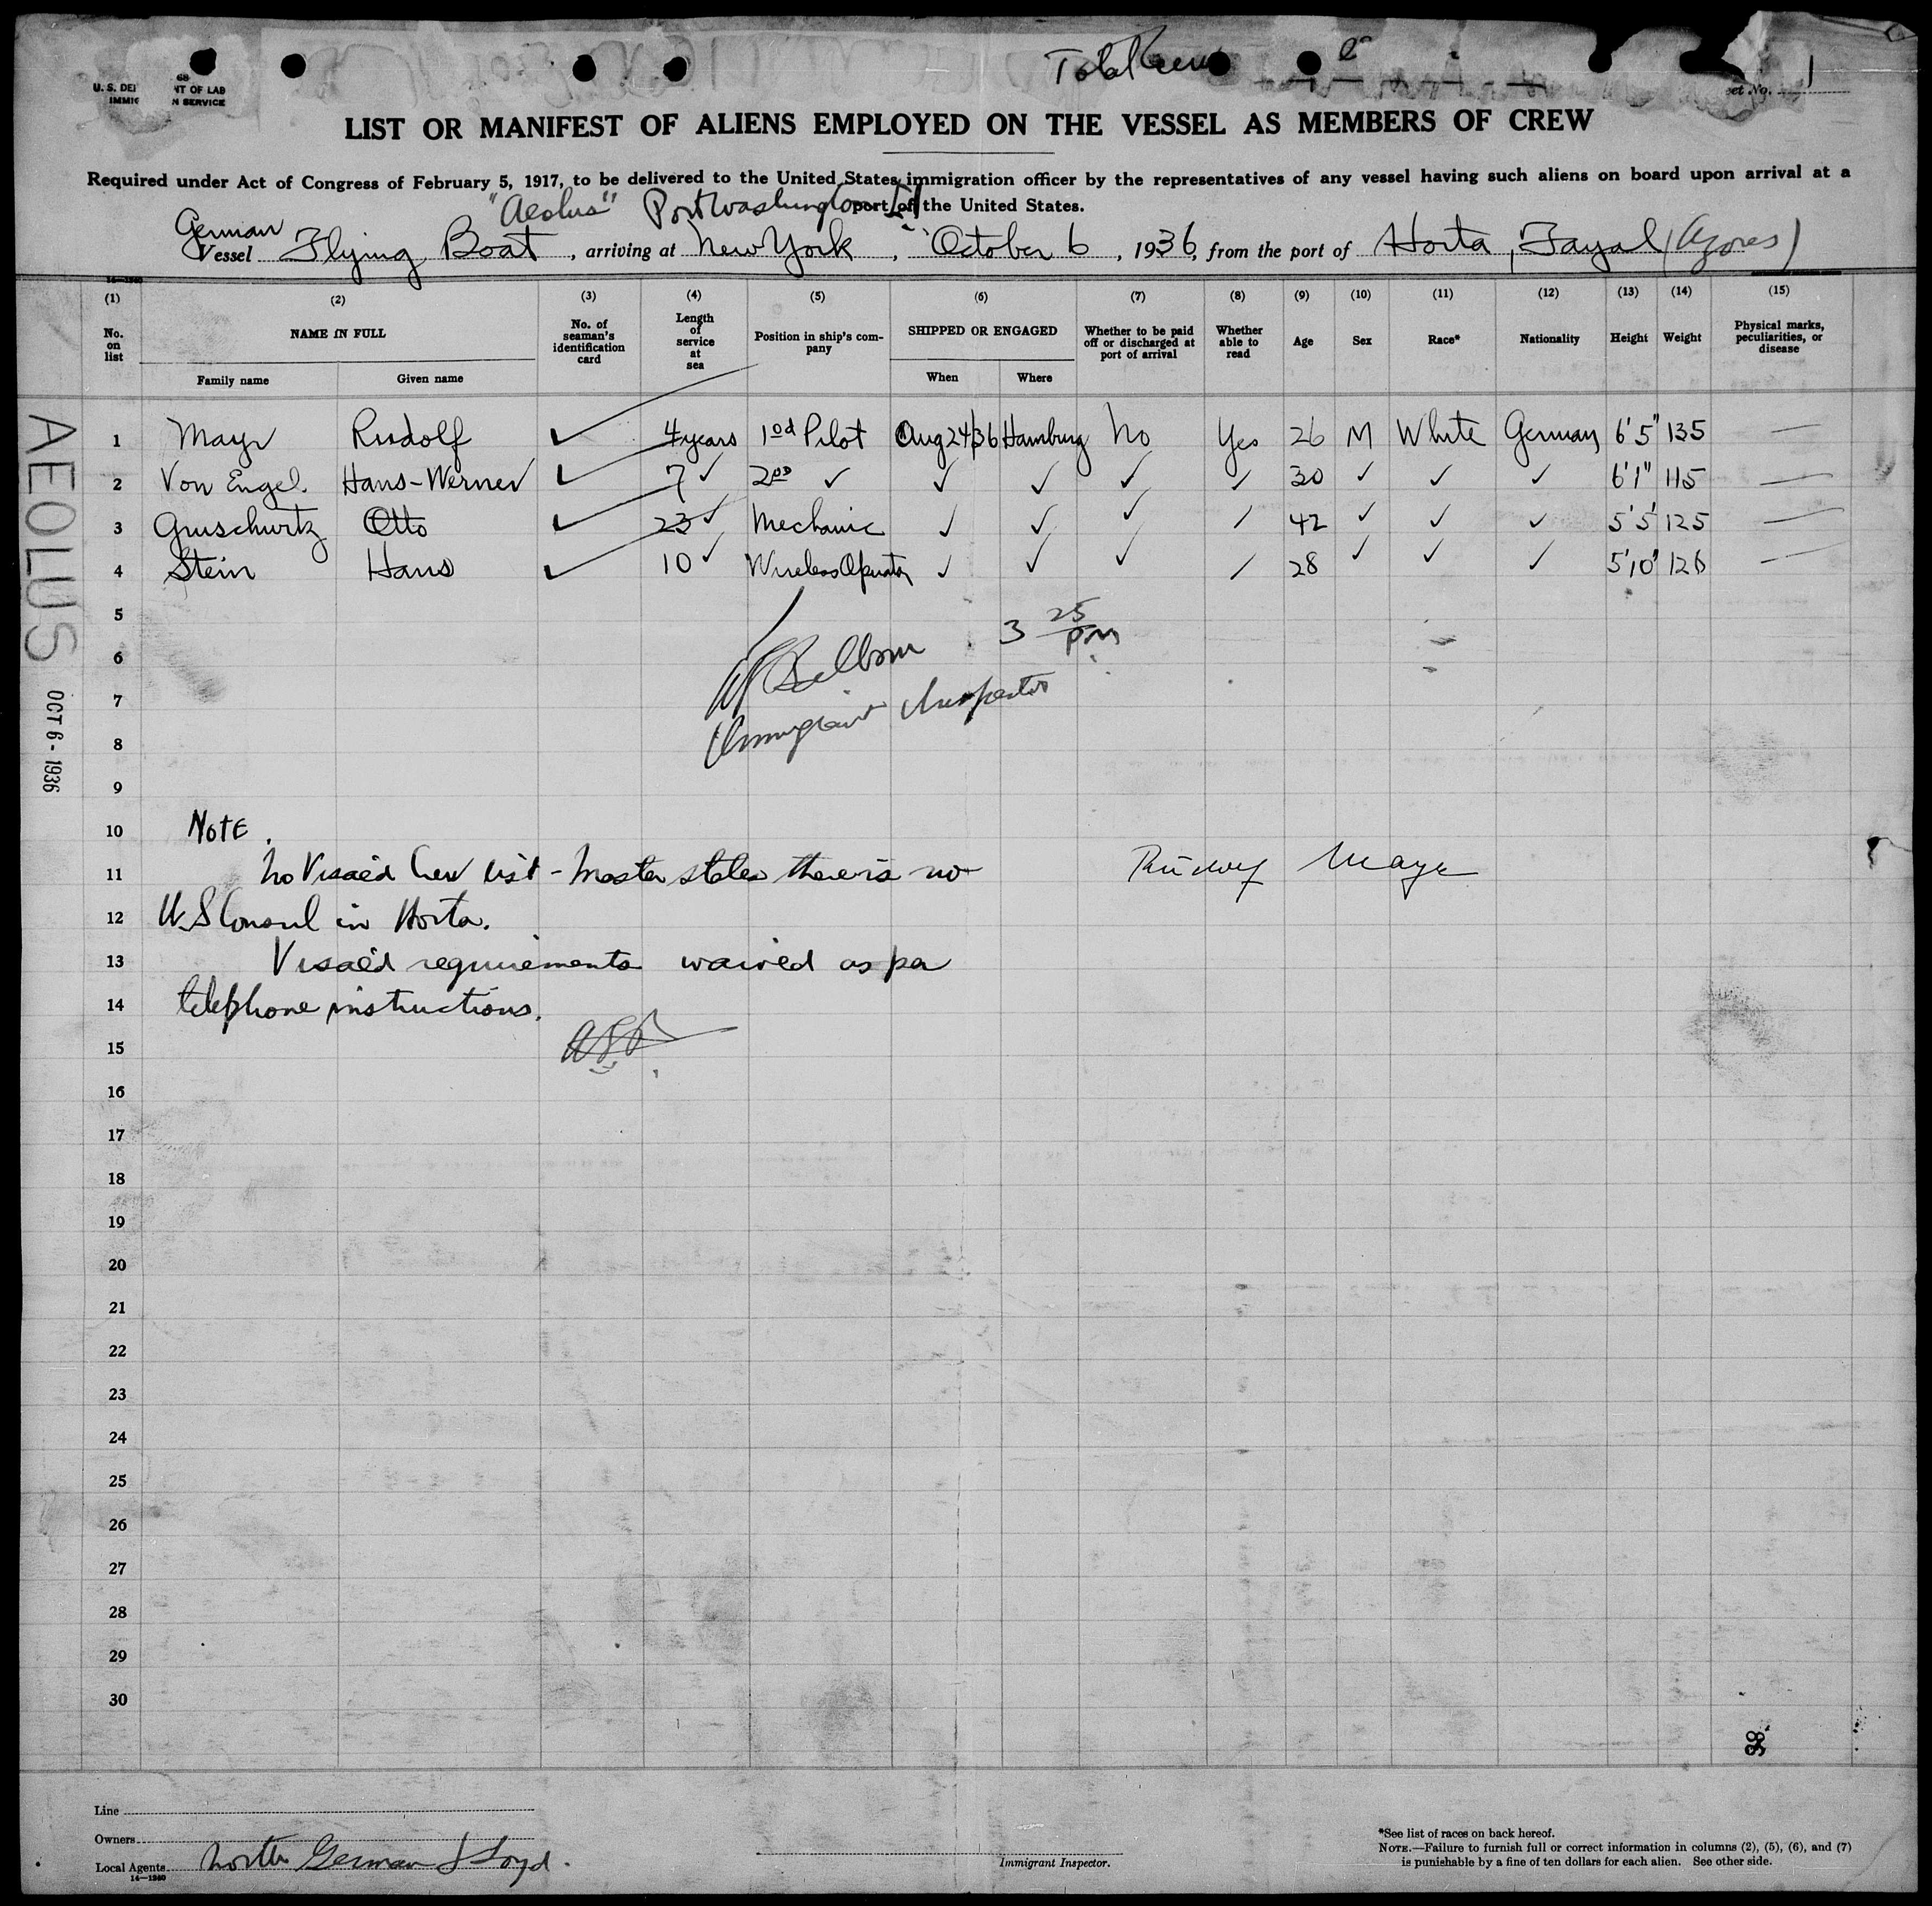 Total Crew
U. S. DE NT OF LAB
IMMIG N SERVICE
eet No. 1
LIST OR MANIFEST OF ALIENS EMPLOYED ON THE VESSEL AS MEMBERS OF CREW
Required under Act of Congress of February 5, 1917, to be delivered to the United States immigration officer by the representatives of any vessel having such aliens on board upon arrival at a
port of the United States.
"Aeolus" Port Washington LI
German
Vessel Flying Boat, arriving at New York, October 6, 1936, from the port of Horta, Fayal (Azores)
(1) (2) (3) (4) (5) (6) (7) (8) (9) (10) (11) (12) (13) (14) (15)
No. on list NAME IN FULL No. of seaman's identification card Length of service at sea Position in ship's company SHIPPED OR ENGAGED Whether to be paid off or discharged at port of arrival Whether able to read Age Sex Race* Nationality Height Weight Physical marks, peculiarities, or disease
Family name Given name When Where
1 Mayr Rudolf ✓ 4 years 1od Pilot Aug 24/36 Hamburg No Yes 26 M White German 6'5" 135 —
2 Von Engel Hans-Werner ✓ 7 ✓ 2nd ✓ ✓ ✓ ✓ ✓ 30 ✓ ✓ ✓ 6'1" 115 —
3 Gruschwitz Otto ✓ 23 ✓ Mechanic ✓ ✓ ✓ ✓ 42 ✓ ✓ ✓ 5'5" 125 —
4 Stein Hans ✓ 10 ✓ Wireless Operator ✓ ✓ ✓ ✓ 28 ✓ ✓ ✓ 5'10" 126 —
5
6
3 25 pm
7
Immigrant Inspector
8
9
10 Note.
11 No Visaéd Crew list - Master states there is no
Rudolf Mayr
12 U.S Consul in Horta.
13 Visaéd requirements waived as per
14 telephone instructions.
15
16
17
18
19
20
21
22
23
24
25
26
27
28
29
30
AEOLUS
OCT 6 - 1936
Line
Owners
Local Agents North German Lloyd.
14—1240
Immigrant Inspector.
*See list of races on back hereof.
NOTE.—Failure to furnish full or correct information in columns (2), (5), (6), and (7)
is punishable by a fine of ten dollars for each alien. See other side.